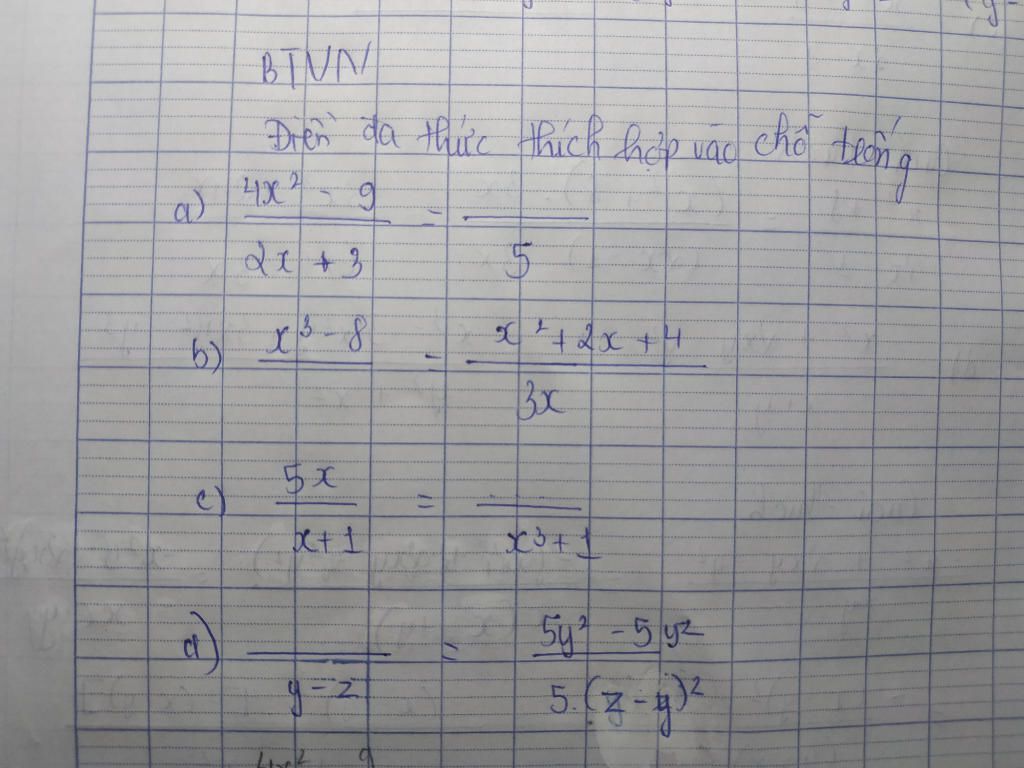 BTVN
Điền đa thức thích hợp vào chỗ trống
a) 4x² - 9 / 2x + 3 = / 5
b) x³ - 8 / = x² + 2x + 4 / 3x
c) 5x / x+1 = / x³+1
d) / y-z = 5y² - 5y² / 5.(z-y)²
4x² 9